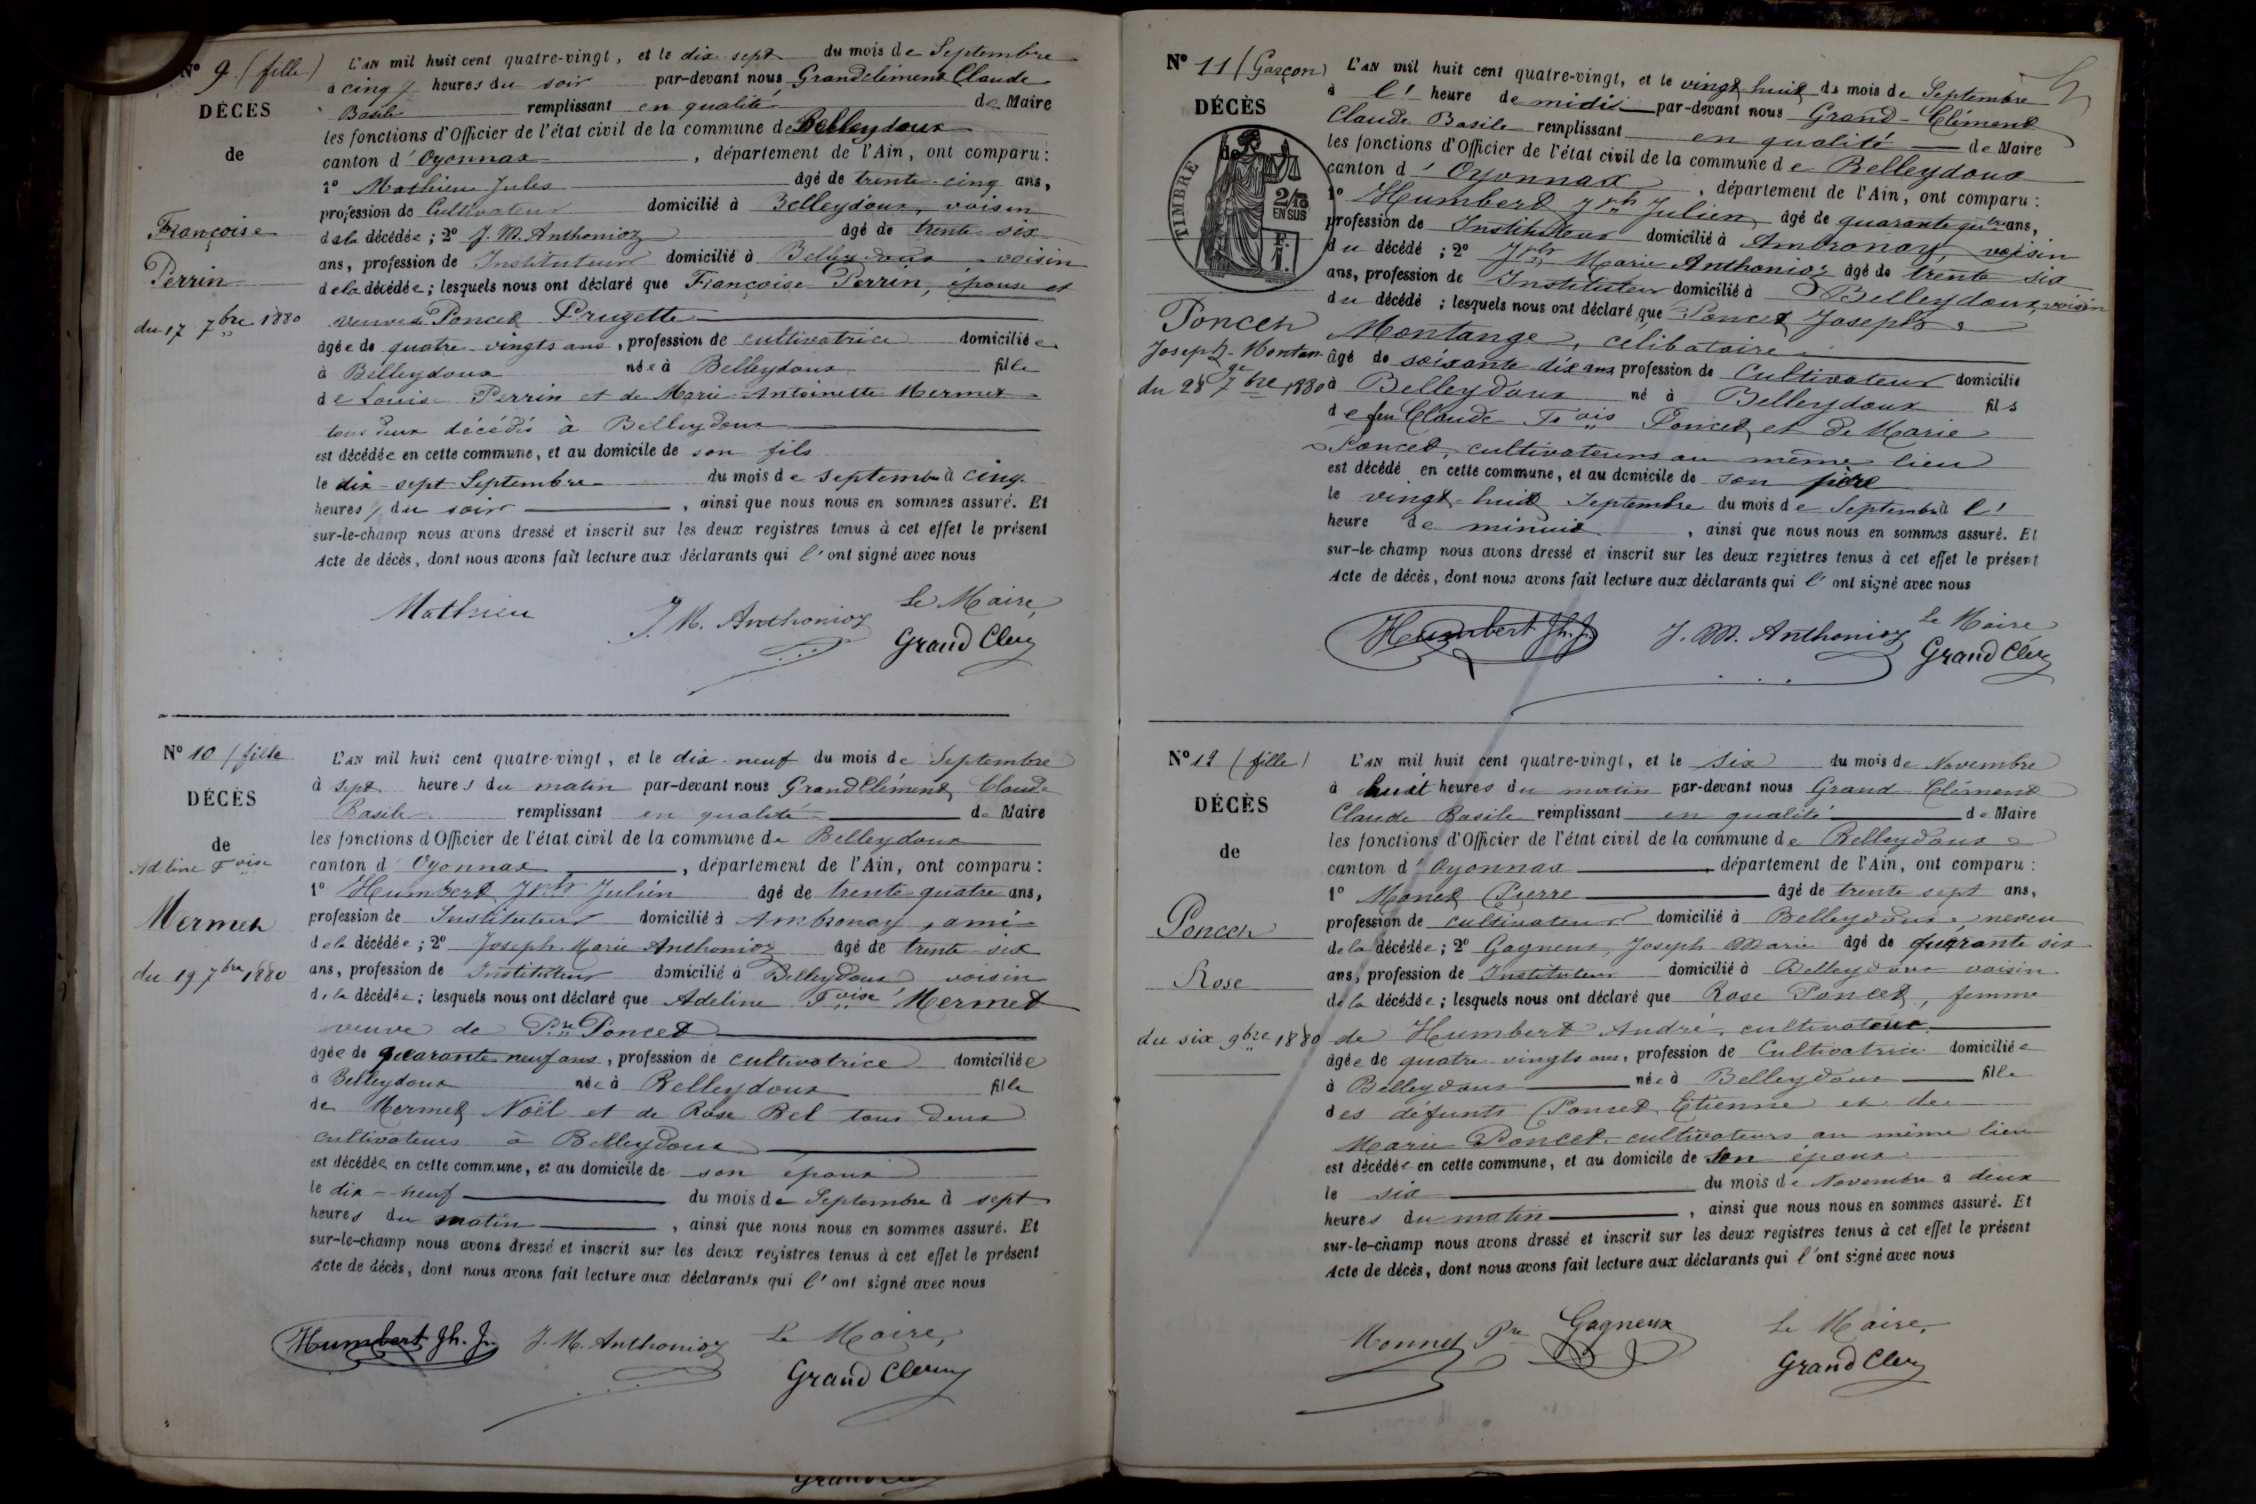 Nº 9 (fille)
DÉCÈS
de
Françoise
Perrin
du 17 7bre 1880
L'AN mil huit cent quatre-vingt, et le dix sept du mois de Septembre
à cinq heures du soir par-devant nous Grandclément Claude
Basile remplissant en qualité de Maire
les fonctions d'Officier de l'état civil de la commune de Belleydoux
canton d'Oyonnax, département de l'Ain, ont comparu :
1º Mathieu Jules âgé de trente-cinq ans,
profession de Cultivateur domicilié à Belleydoux, voisin
de la décédée ; 2º J. M. Anthonioz âgé de trente-six
ans, profession de Instituteur domicilié à Belleydoux voisin
de la décédée ; lesquels nous ont déclaré que Françoise Perrin, épouse et
veuve Poncet Prugette
âgée de quatre-vingts ans, profession de cultivatrice domiciliée
à Belleydoux née à Belleydoux fille
de Louis Perrin et de Marie-Antoinette Mermet
tous deux décédés à Belleydoux
est décédée en cette commune, et au domicile de son fils
le dix-sept Septembre du mois de septembre à cinq
heures du soir, ainsi que nous nous en sommes assuré. Et
sur-le-champ nous avons dressé et inscrit sur les deux registres tenus à cet effet le présent
Acte de décès, dont nous avons fait lecture aux déclarants qui l'ont signé avec nous
Mathieu J. M. Anthonioz Le Maire,
Grand Clém
Nº 10 (fille
DÉCÈS
de
Adeline Foise
Mermet
du 19 7bre 1880
L'AN mil huit cent quatre-vingt, et le dix-neuf du mois de Septembre
à sept heures du matin par-devant nous Grandclément, Claude
Basile remplissant en qualité de Maire
les fonctions d'Officier de l'état civil de la commune de Belleydoux
canton d'Oyonnax, département de l'Ain, ont comparu :
1º Humbert Jph Julien âgé de trente-quatre ans,
profession de Instituteur domicilié à Ambronay, ami
de la décédée ; 2º Joseph-Marie Anthonioz âgé de trente-six
ans, profession de Instituteur domicilié à Belleydoux voisin
de la décédée ; lesquels nous ont déclaré que Adeline Foise Mermet
veuve de Pre Poncet
âgée de quarante-neuf ans, profession de cultivatrice domiciliée
à Belleydoux née à Belleydoux fille
de Mermet Noël et de Rose Bel tous deux
cultivateurs à Belleydoux
est décédée en cette commune, et au domicile de son époux
le dix-neuf du mois de Septembre à sept
heures du matin, ainsi que nous nous en sommes assuré. Et
sur-le-champ nous avons dressé et inscrit sur les deux registres tenus à cet effet le présent
Acte de décès, dont nous avons fait lecture aux déclarants qui l'ont signé avec nous
Humbert Jh. J. J. M. Anthonioz Le Maire,
Grand Clém
Nº 11 (Garçon)
DÉCÈS
de
TIMBRE
2/10
EN SUS
Poncet
Joseph-Montange
du 28 7bre 1880
L'AN mil huit cent quatre-vingt, et le vingt-huit du mois de Septembre
à l' heure de midi par-devant nous Grand-Clément
Claude Basile remplissant en qualité de Maire
les fonctions d'Officier de l'état civil de la commune de Belleydoux
canton d'Oyonnax, département de l'Ain, ont comparu :
1º Humbert Jph Julien âgé de quarante quatre ans,
profession de Instituteur domicilié à Ambronay, voisin
du décédé ; 2º Jph Marie Anthonioz âgé de trente six
ans, profession de Instituteur domicilié à Belleydoux, voisin
du décédé ; lesquels nous ont déclaré que Poncet Joseph
Montange, célibataire
âgé de soixante-dix ans profession de Cultivateur domicilié
à Belleydoux né à Belleydoux fils
de feu Claude Fois Poncet et de Marie
Poncet, cultivateurs au même lieu
est décédé en cette commune, et au domicile de son père
le vingt-huit Septembre du mois de Septembre à l'
heure de minuit, ainsi que nous nous en sommes assuré. Et
sur-le-champ nous avons dressé et inscrit sur les deux registres tenus à cet effet le présent
Acte de décès, dont nous avons fait lecture aux déclarants qui l'ont signé avec nous
Humbert Jh. J. J. M. Anthonioz Le Maire
Grand Clém
Nº 12 (fille)
DÉCÈS
de
Poncet
Rose
du six 9bre 1880
L'AN mil huit cent quatre-vingt, et le six du mois de Novembre
à huit heures du matin par-devant nous Grand Clément
Claude Basile remplissant en qualité de Maire
les fonctions d'Officier de l'état civil de la commune de Belleydoux
canton d'Oyonnax, département de l'Ain, ont comparu :
1º Monet Pierre âgé de trente sept ans,
profession de cultivateur domicilié à Belleydoux, neveu
de la décédée ; 2º Gagneux, Joseph Marie âgé de quarante six
ans, profession de Instituteur domicilié à Belleydoux voisin
de la décédée ; lesquels nous ont déclaré que Rose Poncet, femme
de Humbert André, cultivateur
âgée de quatre-vingts ans, profession de Cultivatrice domiciliée
à Belleydoux née à Belleydoux fille
des défunts Poncet Etienne et de
Marie Poncet cultivateurs au même lieu
est décédée en cette commune, et au domicile de son époux
le six du mois de Novembre à deux
heures du matin, ainsi que nous nous en sommes assuré. Et
sur-le-champ nous avons dressé et inscrit sur les deux registres tenus à cet effet le présent
Acte de décès, dont nous avons fait lecture aux déclarants qui l'ont signé avec nous
Monnet Pre Gagneux Le Maire,
Grand Clém